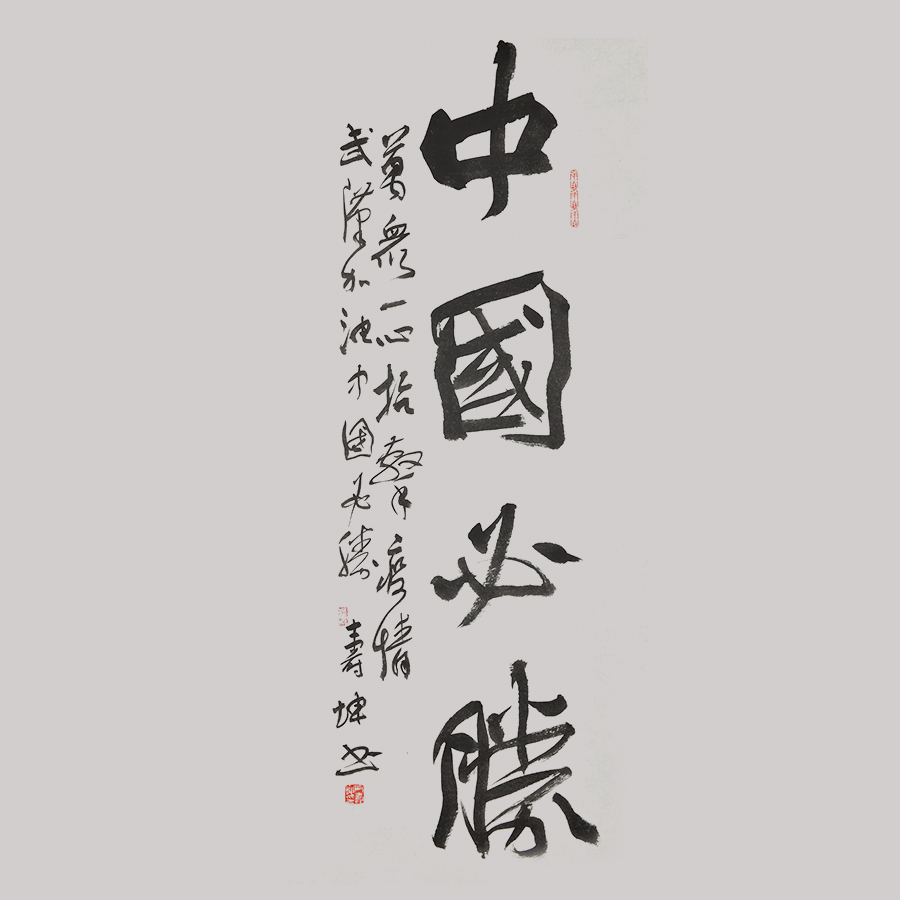 中國必勝
萬衆一心抗擊疫情
武漢加油中國必勝 壽坤書